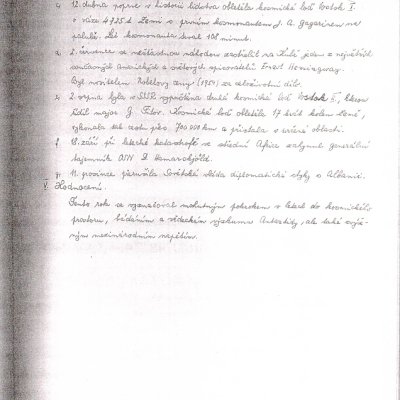 c, 12. dubna poprvé v historii lidstva obletěla kosmická loď Vostok I.
o váze 4725 d Zemi s prvním kosmonautem J. A. Gagarinem na
palubě. Let kosmonauta trval 108 minut.
2. července se nešťastnou náhodou zastřelil na Kubě jeden z největších
současných amerických a světových spisovatelů Ernest Hemingway.
Byl nositelem Nobelovy ceny (1954) za celoživotní dílo.
e, 2. srpna byla v SSSR vypuštěna druhá kosmická loď Vostok II, kterou
řídil major G. Titov. Kosmická loď obletěla 17 krát kolem Země,
vykonala tak cestu přes 700 000 km a přistála v určené oblasti.
f, 18. září při letecké katastrofě ve střední Africe zahynul generální
tajemník OSN D Hamarskjöld.
g, 11. prosince přerušila Sovětská vláda diplomatické styky s Albánií.
V. Hodnocení.
Tento rok se vyznačoval mohutným pokrokem v letech do kosmického
prostoru, bádáním a vědeckým výzkumu Antarktidy, ale také zvýše-
ným mezinárodním napětím.